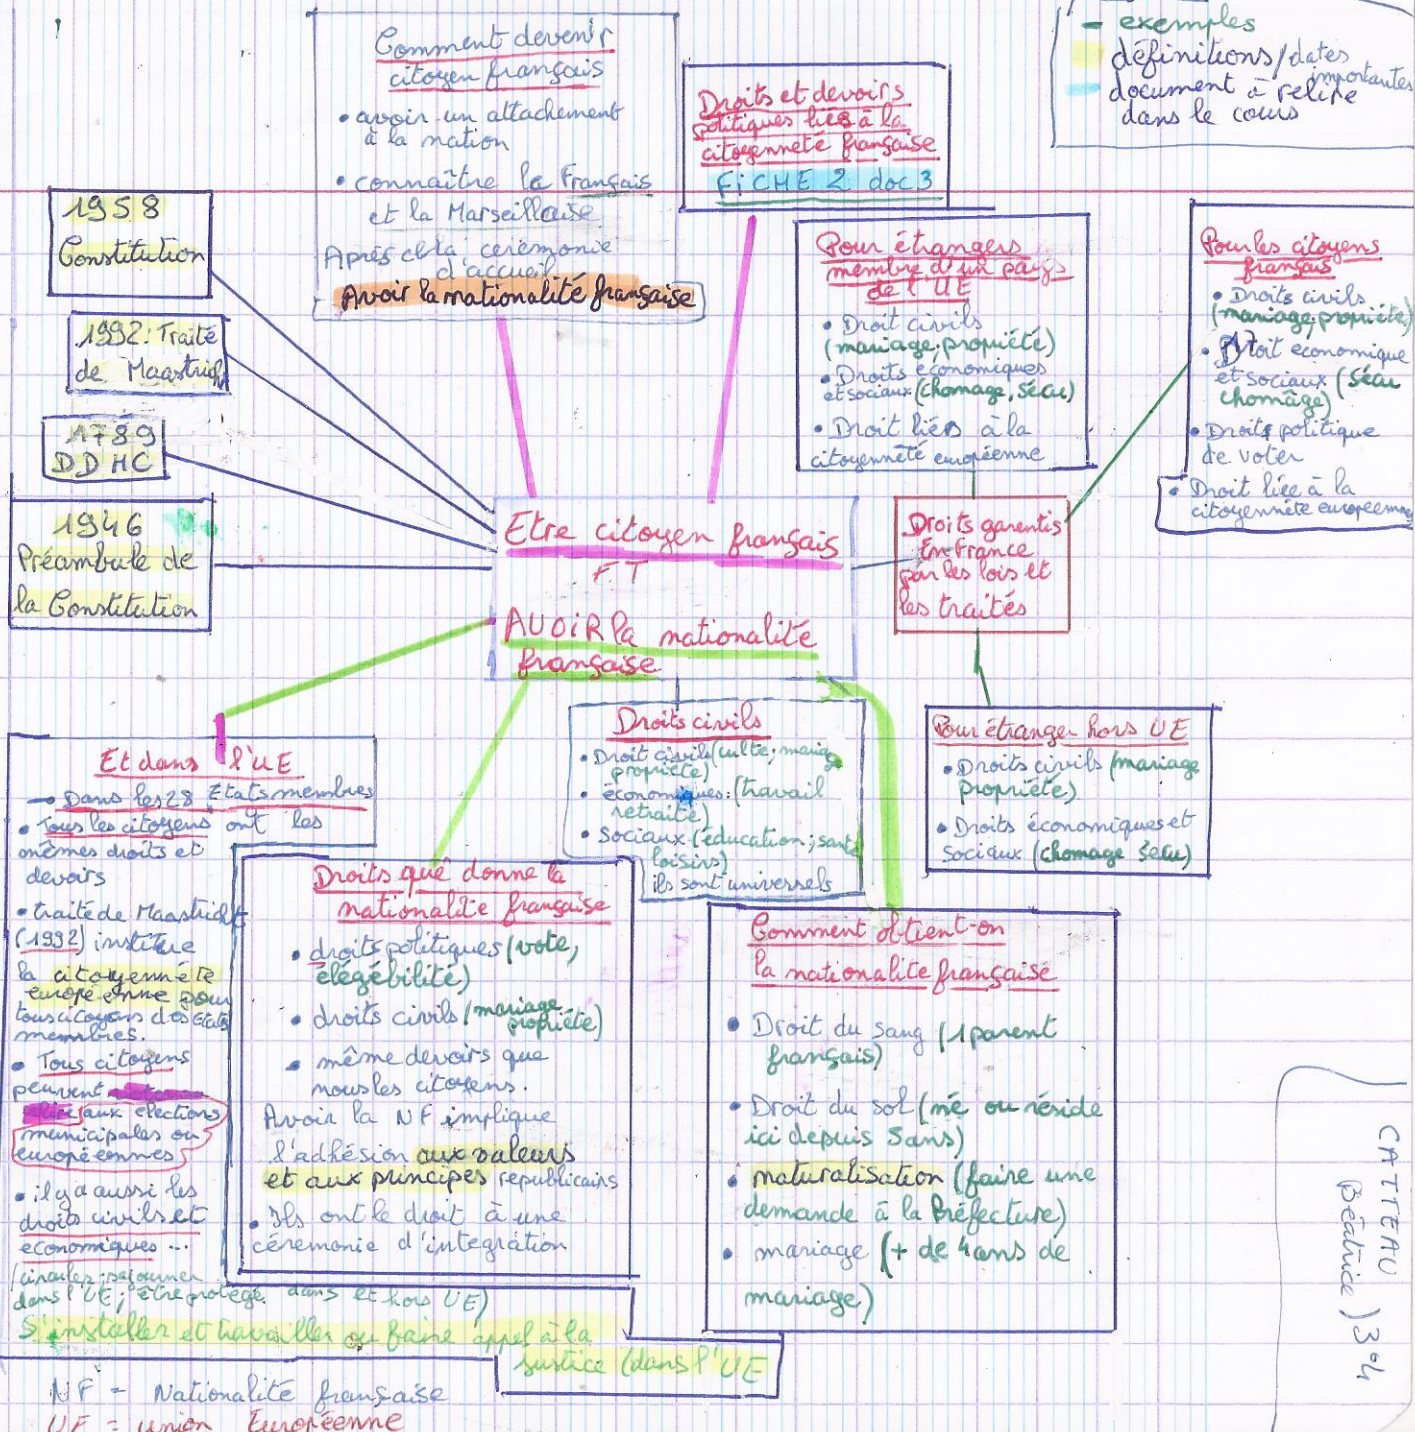 - exemples
définitions/dates
importantes
document à relire
dans le cours
Comment devenir
citoyen français
• avoir un attachement
à la nation
• connaître le Français
et la Marseillaise
Après cela, cérémonie
d'accueil
Avoir la nationalité française
Droits et devoirs
politiques liés à la
citoyenneté française
FiCHE 2 doc3
1958
Constitution
1992: Traité
de Maastrich
1789
DDHC
1946
Préambule de
la Constitution
Pour étrangers
membre d'un pays
de l'UE
• Droit civils
(mariage, propriété)
• Droits économiques
et sociaux (chomage, sécu)
• Droit liés à la
citoyenneté européenne
Pour les citoyens
français
• Droits civils
(mariage, propriété)
• Droit economique
et sociaux (sécu
chomâge)
• Droits politique
de voter
• Droit liée à la
citoyennete europeenne
Etre citoyen français
ET
AVOiR la nationalité
française
Droits garentis
En France
par les lois et
les traités
Droits civils
• Droit civils (culte, mariag
propriété)
• économiques: (travail
retraite)
• Sociaux (éducation; santé
loisirs)
ils sont universels
Pour étranger hors UE
• Droits civils (mariage
propriété)
• Droits économiques et
sociaux (chomage sécu)
Et dans l'UE
→ Dans les 28 Etats membres
• Tous les citoyens ont les
mêmes droits et
devoirs
• traité de Maastricht
(1992) institue
la citoyenneté
européenne pour
tous citoyens des Etats
membres.
• Tous citoyens
peuvent
élire aux élections
municipales ou
européennes
• il y a aussi les
droits civils et
economiques ...
(circuler, sejourner
dans l'UE; être protégé dans et hors UE)
S'installer et travailler ou faire appel à la
justice (dans l'UE
Droits que donne la
nationalité française
• droits politiques (vote,
élégébilité)
• droits civils (mariage
propriété)
• même devoirs que
nous les citoyens.
Avoir la NF implique
l'adhésion aux valeurs
et aux principes republicains
• Ils ont le droit à une
céremonie d'integration
Comment obtient-on
la nationalite française
• Droit du sang (1 parent
français)
• Droit du sol (né ou réside
ici depuis 5 ans)
• naturalisation (faire une
demande à la Préfecture)
• mariage (+ de 4 ans de
mariage)
CATTEAU
Béatrice) 3°4
NF = Nationalité française
UE = union Européenne